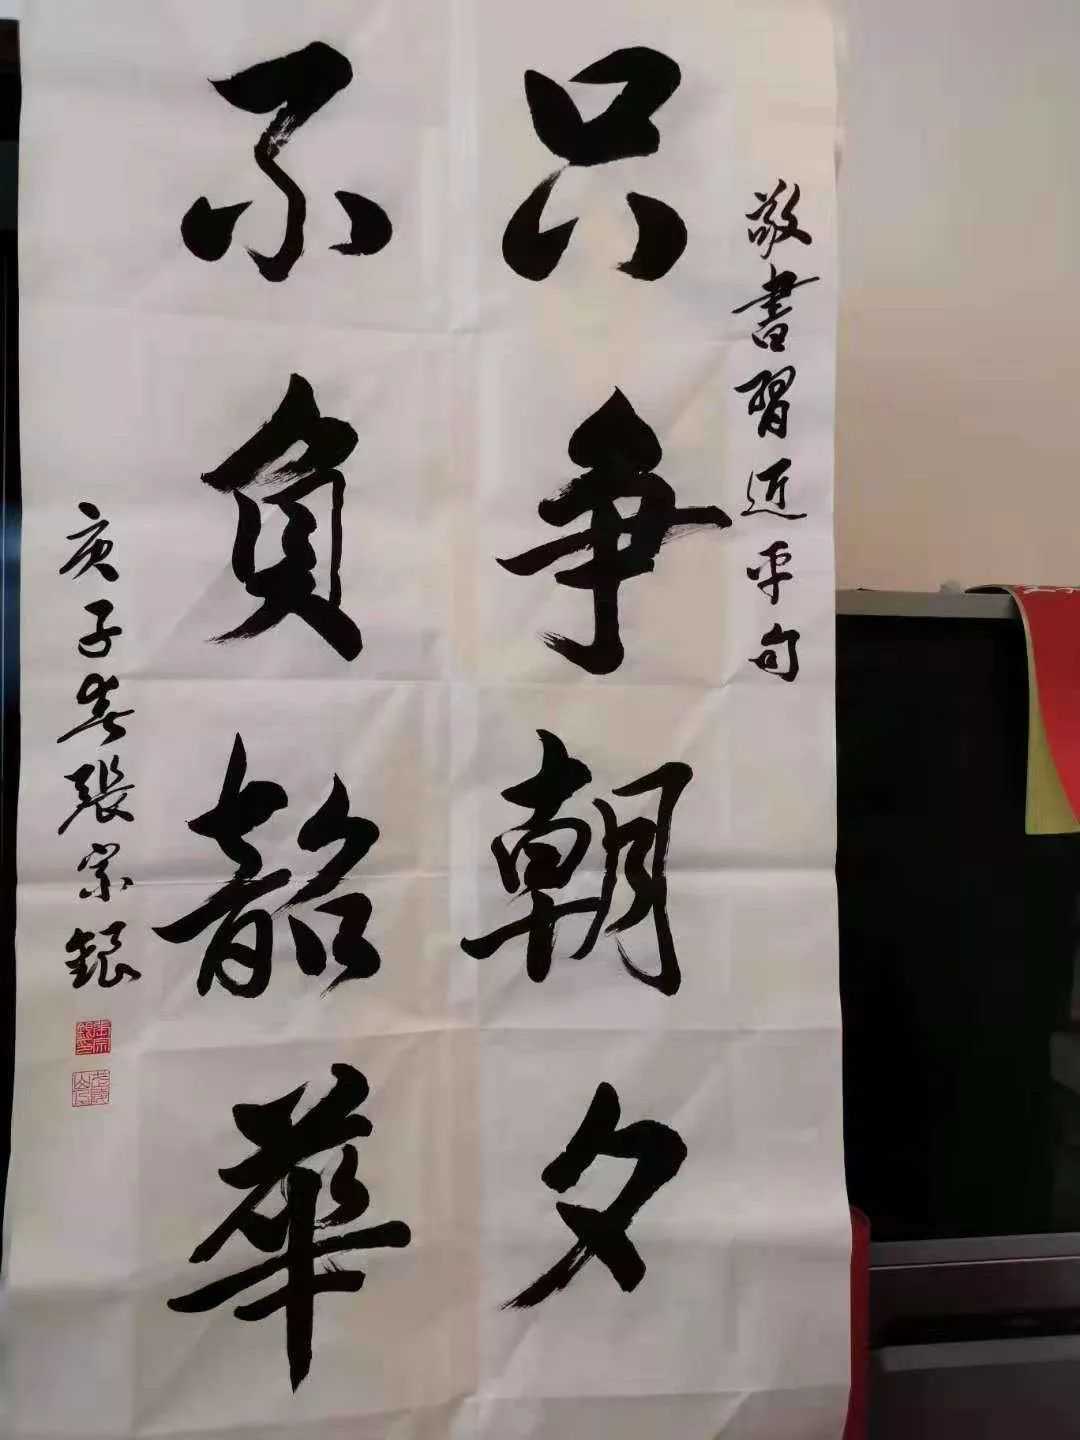 敬書習近平句
只争朝夕
不負韶華
庚子春張宗銀